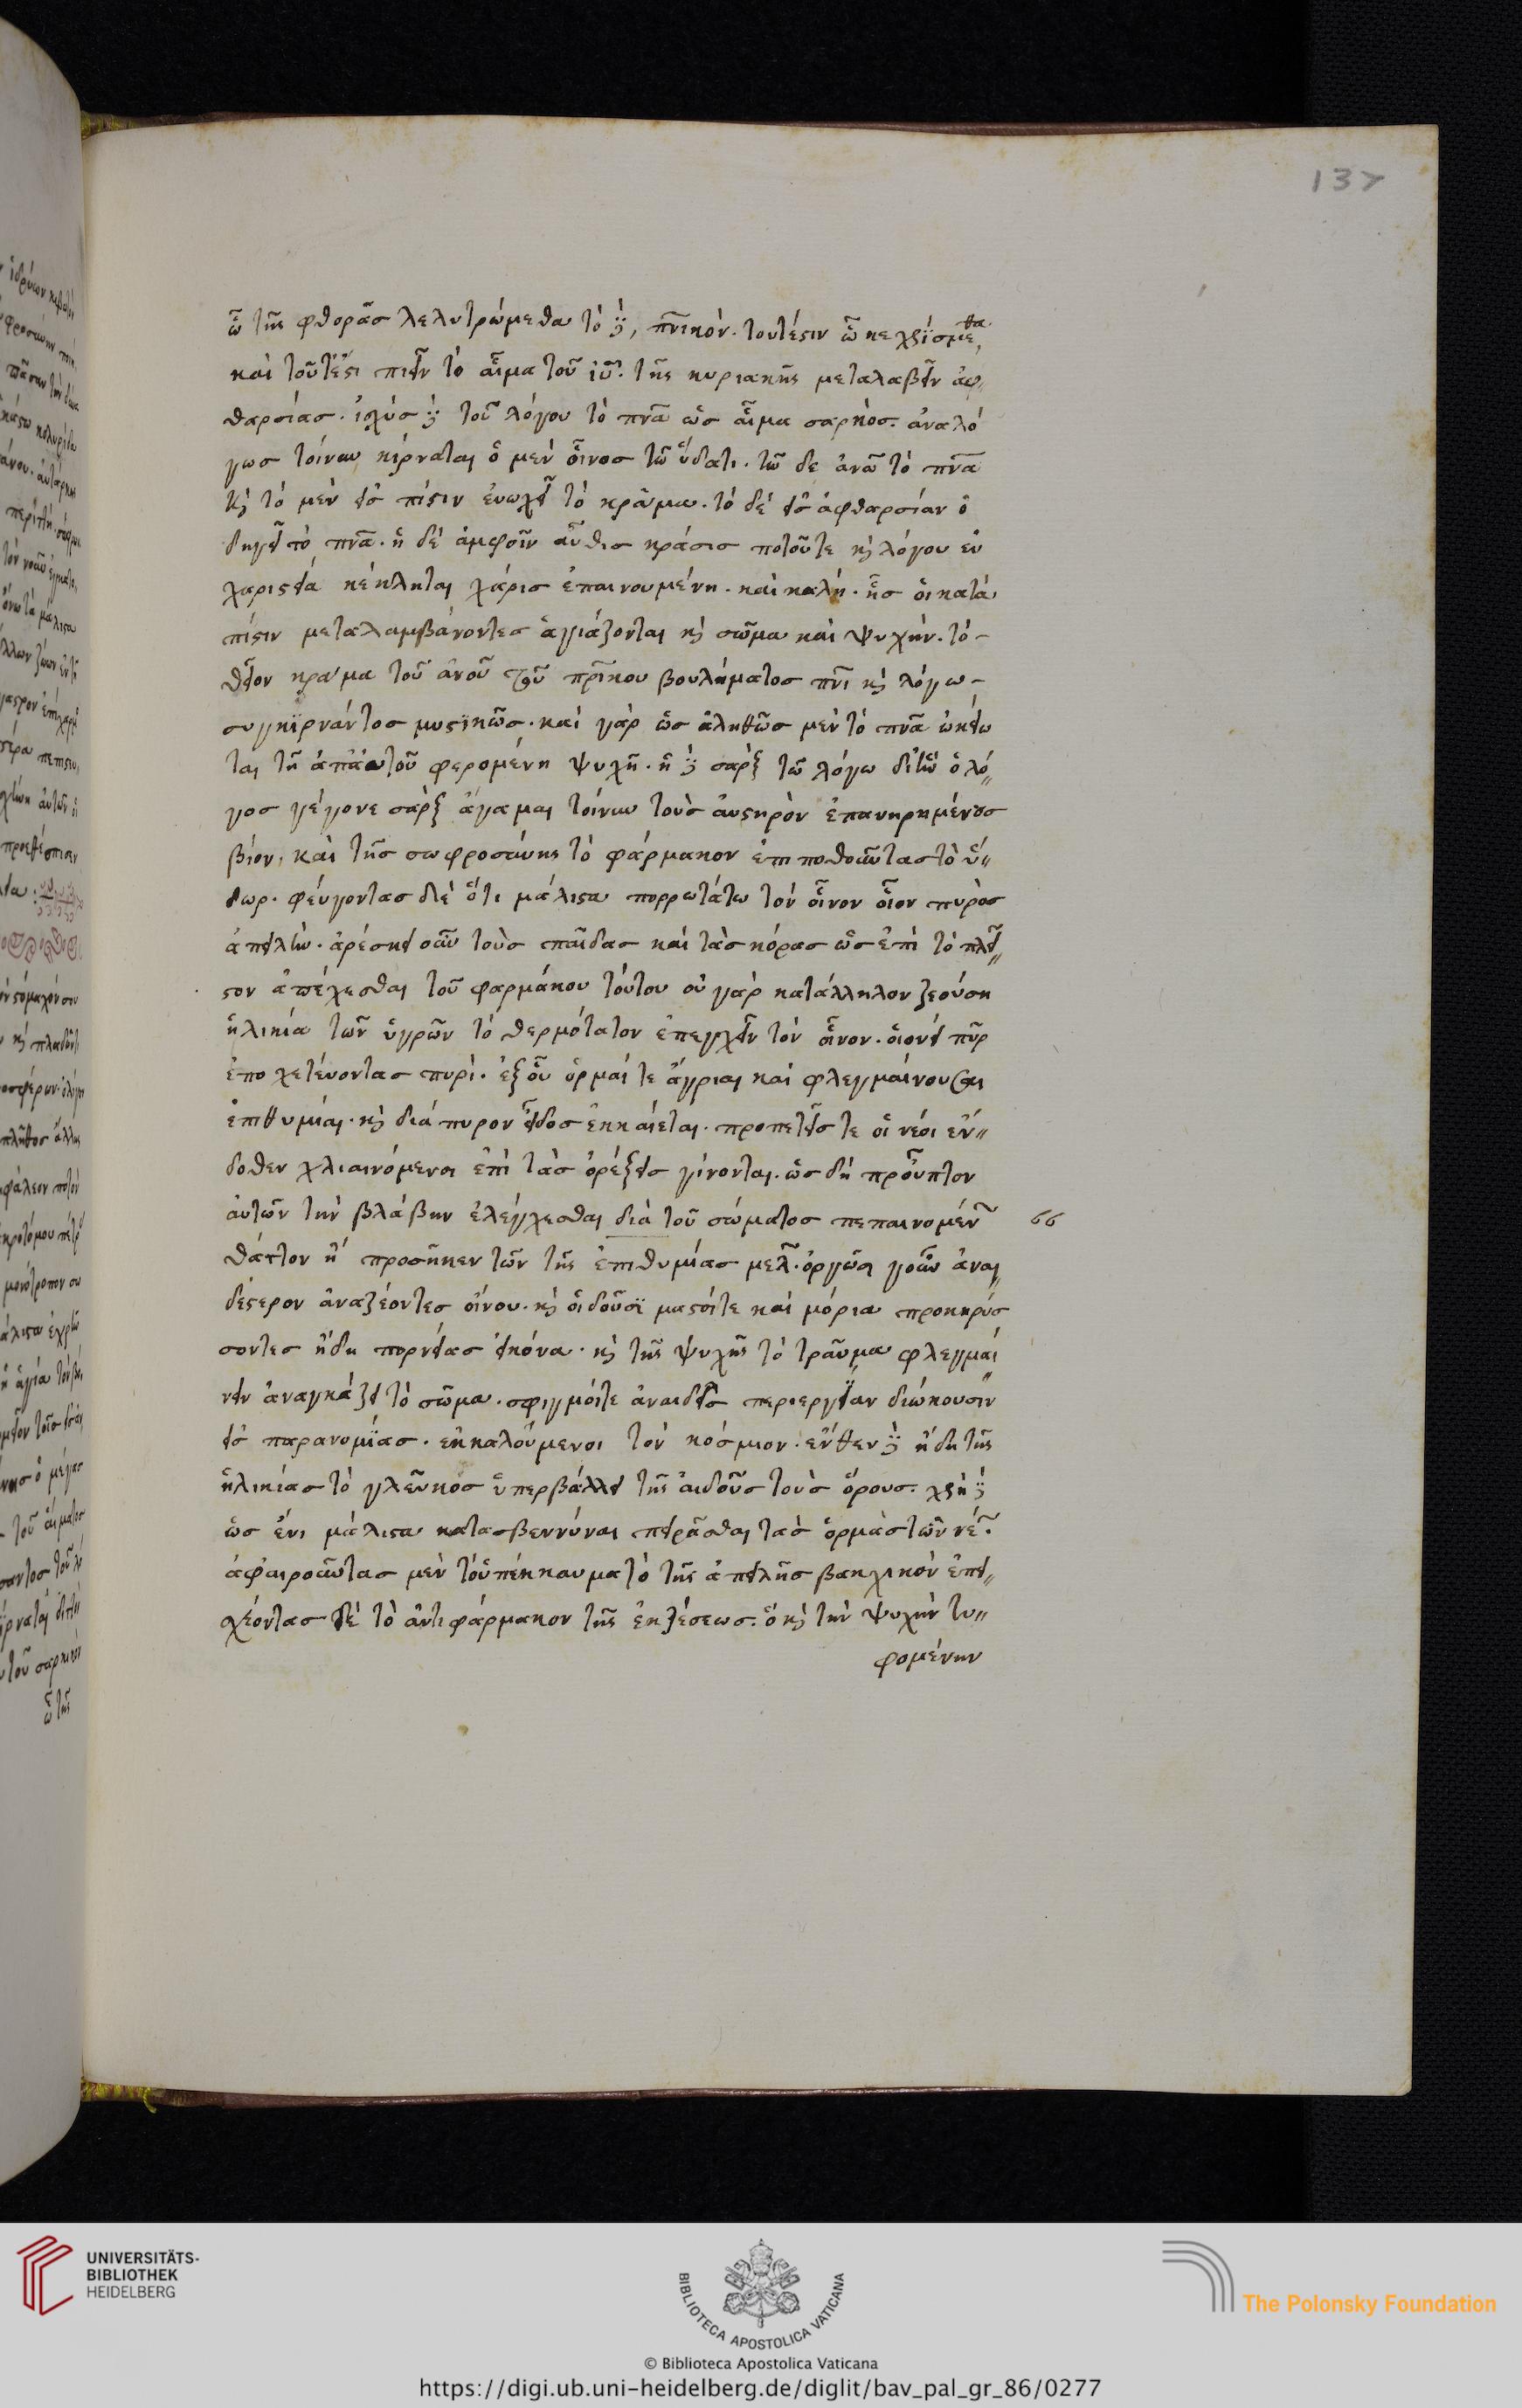 137
ὧ τῆς φθορᾶσ λελυτρώμεθα τὸ δὲ, πν̅ικόν. τουτέςιν ὧ κεχρίσμεθα,
καὶ τοῦτ' ἔςι πιεῖν τὸ αἷμα τοῦ ἰυ̅. τῆς κυριακῆς μεταλαβεῖν ἀφ,
θαρσίας. ἰσχὺσ δὲ τοῦ λόγου τὸ πν̅α ὡσ αἷμα σαρκὸσ. ἀναλό
γωσ τοίνυν κίρναται ὁ μὲν οἶνοσ τῶ ὕδατι. τῶ δε ἀνω̅ τὸ πν̅α
κὶ τὸ μὲν εἰσ πίςιν εὐωχεῖ τὸ κρᾶμα. τὸ δὲ εἰσ ἀφθαρσίαν ὁ
δηγεῖ τὸ πν̅α. ἡ δὲ ἀμφοῖν αὖθισ κράσισ ποτοῦτε κὶ λόγου εὐ
χαριςεία κέκληται χάρισ ἐπαινουμένη. καὶ καλή. ἧσ οἱ κατὰ
πίςιν μεταλαμβάνοντεσ ἁγιάζονται κὶ σῶμα καὶ ψυχήν. τὸ -
θεῖον κρᾶμα τοῦ ἀνου̅ τοῦ πρ̅ικου βουλήματοσ πν̅ι κὶ λόγω -
συγκϊρνάντοσ μυςϊκῶσ. καὶ γὰρ ὡσ ἀληθῶσ μὲν τὸ πν̅α ὠκείω
ται τῆ ἀπ' αὐτοῦ φερομένη ψυχῆ. ἡ δὲ σαρξ τῶ λόγω δι' ἣν ὁ λό
γοσ γέγονε σὰρξ ἄγαμαι τοίνυν τοὺσ αὐςηρὸν ἐπανηρημένουσ
βίον, καὶ τῆσ σωφροσύνης τὸ φάρμακον ἐπιποθοῦντασ τὸ ὕ
δωρ. φεύγοντασ δὲ ὅτι μάλιςα πορρωτάτω τὸν οἶνον οἷον πυρὸσ
ἀπειλήν. ἀρέσκει οὖν τοὺσ παῖδας καὶ τὰσ κόρασ ὡσ ἐπὶ τὸ πλεῖ
ςον ἀπέχεσθαι τοῦ φαρμάκου τούτου οὐ γὰρ κατάλληλον ζεούση
ἡλικία τῶν ὑγρῶν τὸ θερμότατον ἐπεγχεῖν τὸν οἶνον. οἱονεὶ πῦρ
ἐποχετεύοντας πυρὶ. ἐξ οὗ ὁρμαί τε ἄγριαι καὶ φλεγμαίνουσαι
ἐπιθυμίαι. κὶ διάπυρον εἶδοσ ἐκκαίεται. προπετεῖσ τε οἱ νέοι ἔν
δοθεν χλιαινόμενοι ἐπὶ τὰσ ὀρέξεισ γίνονται. ὡσ δὴ προὖπτον
αὐτῶν τὴν βλάβην ἐλέγχεσθαι διὰ τοῦ σώματοσ πεπαινομέν̅
66
θᾶττον ἢ προσῆκεν τῶν τῆς ἐπιθυμίασ μελ̅. ὀργῶσι γοῦν ἀναι
δέςερον ἀναζέοντεσ οἴνου. κὶ οἰδοῦσϊ μαςοίτε καὶ μόρια προκηρύσ
σοντεσ ἤδη πορνείασ εἰκόνα. κὶ τῆς ψυχῆς τὸ τραῦμα φλεγμαί
νειν ἀναγκάζει τὸ σῶμα. σφιγμοίτε ἀναιδεῖσ περιεργείαν διώκουσιν
εἰσ παρανομϊασ. ἐκκαλούμενοι τὸν κόσμιον. ἔνθεν δὲ ἤδη τῆς
ἡλικίασ τὸ γλεῦκοσ ὑπερβάλλει τῆς αἰδοῦσ τοὺσ ὅρουσ. χρὴ δὲ
ὡσ ἔνι μάλιςα κατασβεννύναι πειρᾶσθαι τὰσ ὁρμὰσ τῶν νέ̅.
ἀφαιροῦντασ μὲν τοὐπέκκαυμα τὸ τῆς ἀπειλῆσ βακχικὸν ἐπει
χέοντασ δὲ τὸ ἀντιφάρμακον τῆς ἐκζέσεωσ. ὃ κὶ τὴν ψυχὴν τυ
φομένην
UNIVERSITÄTS-
BIBLIOTHEK
HEIDELBERG
BIBLIOTECA APOSTOLICA VATICANA
The Polonsky Foundation
© Biblioteca Apostolica Vaticana
https://digi.ub.uni-heidelberg.de/diglit/bav_pal_gr_86/0277